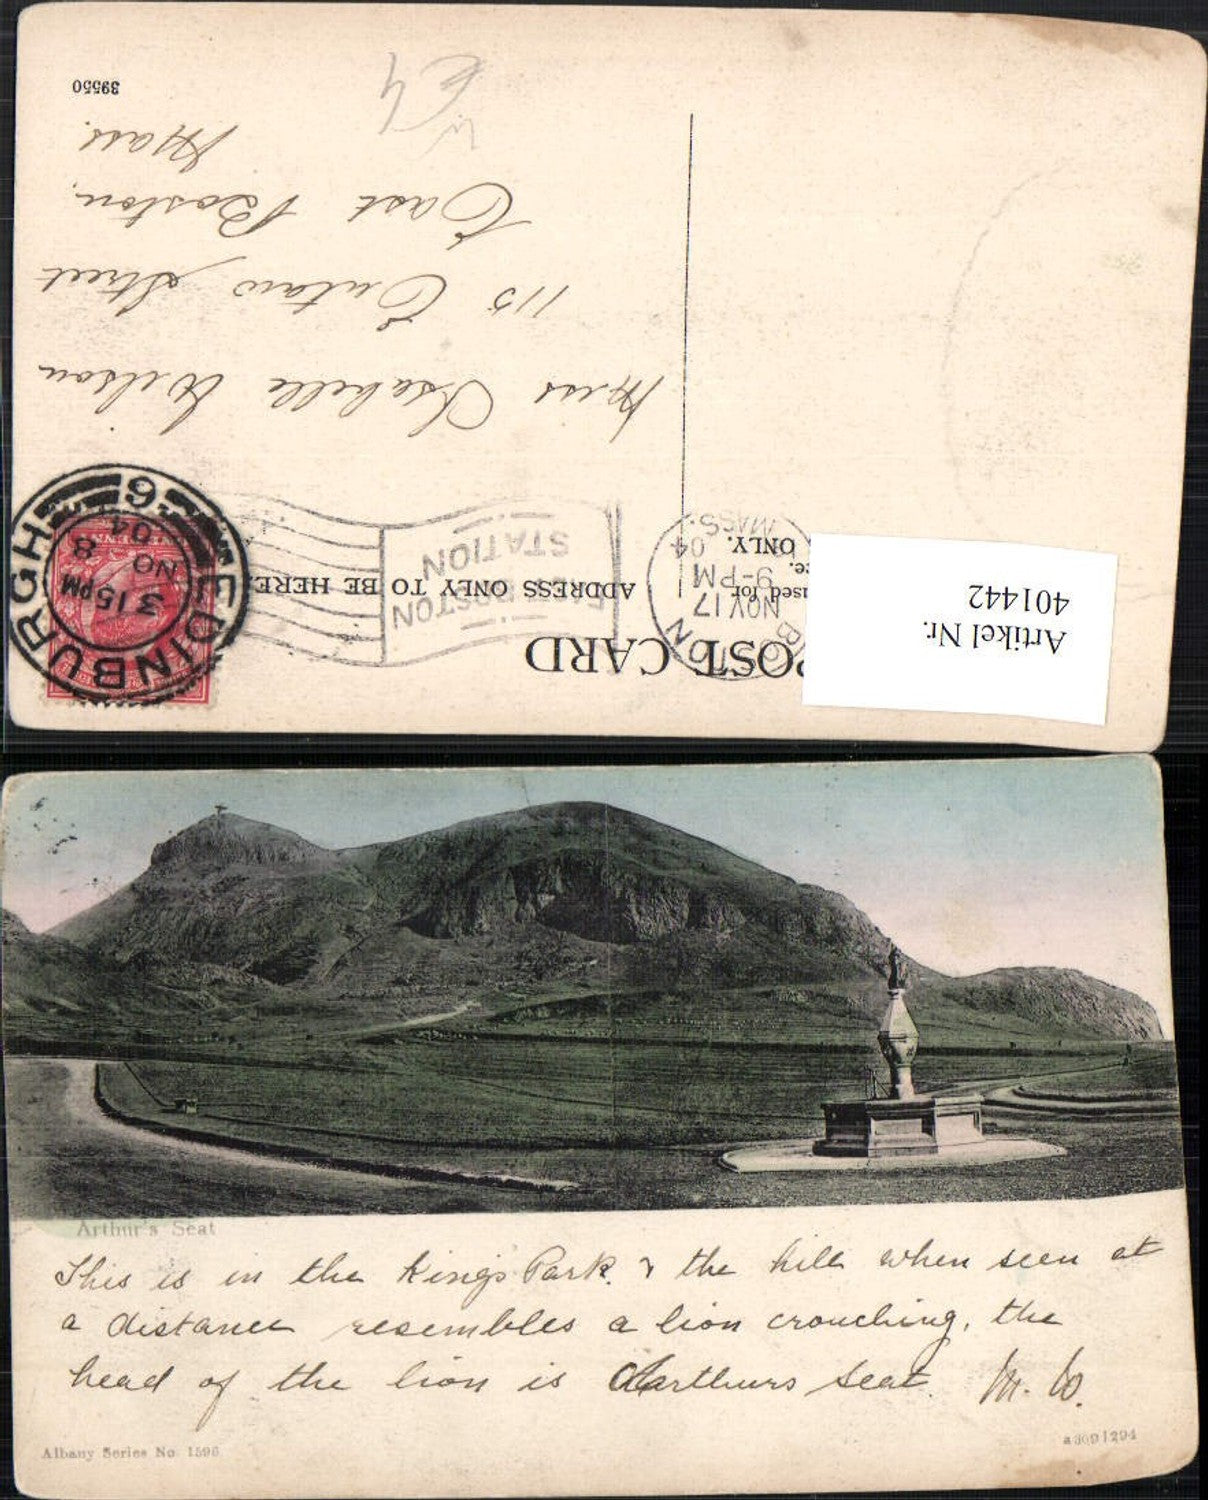 POST CARD
ADDRESS ONLY TO BE HERE.
used for
ce.
ONLY.
EDINBURGH
6
3 15 PM
NO 8
04
BOSTON
NOV 17
9-PM
04
MASS.
EAST BOSTON
STATION
Miss Isabelle Wilson
115 Eutaw Street
East Boston,
Mass.
39550
Artikel Nr.
401442
Arthur's Seat
This is in the King's Park. & the hill when seen at
a distance resembles a lion crouching, the
head of the lion is Arthurs Seat. M. W.
Albany Series No. 1596
a 3091294